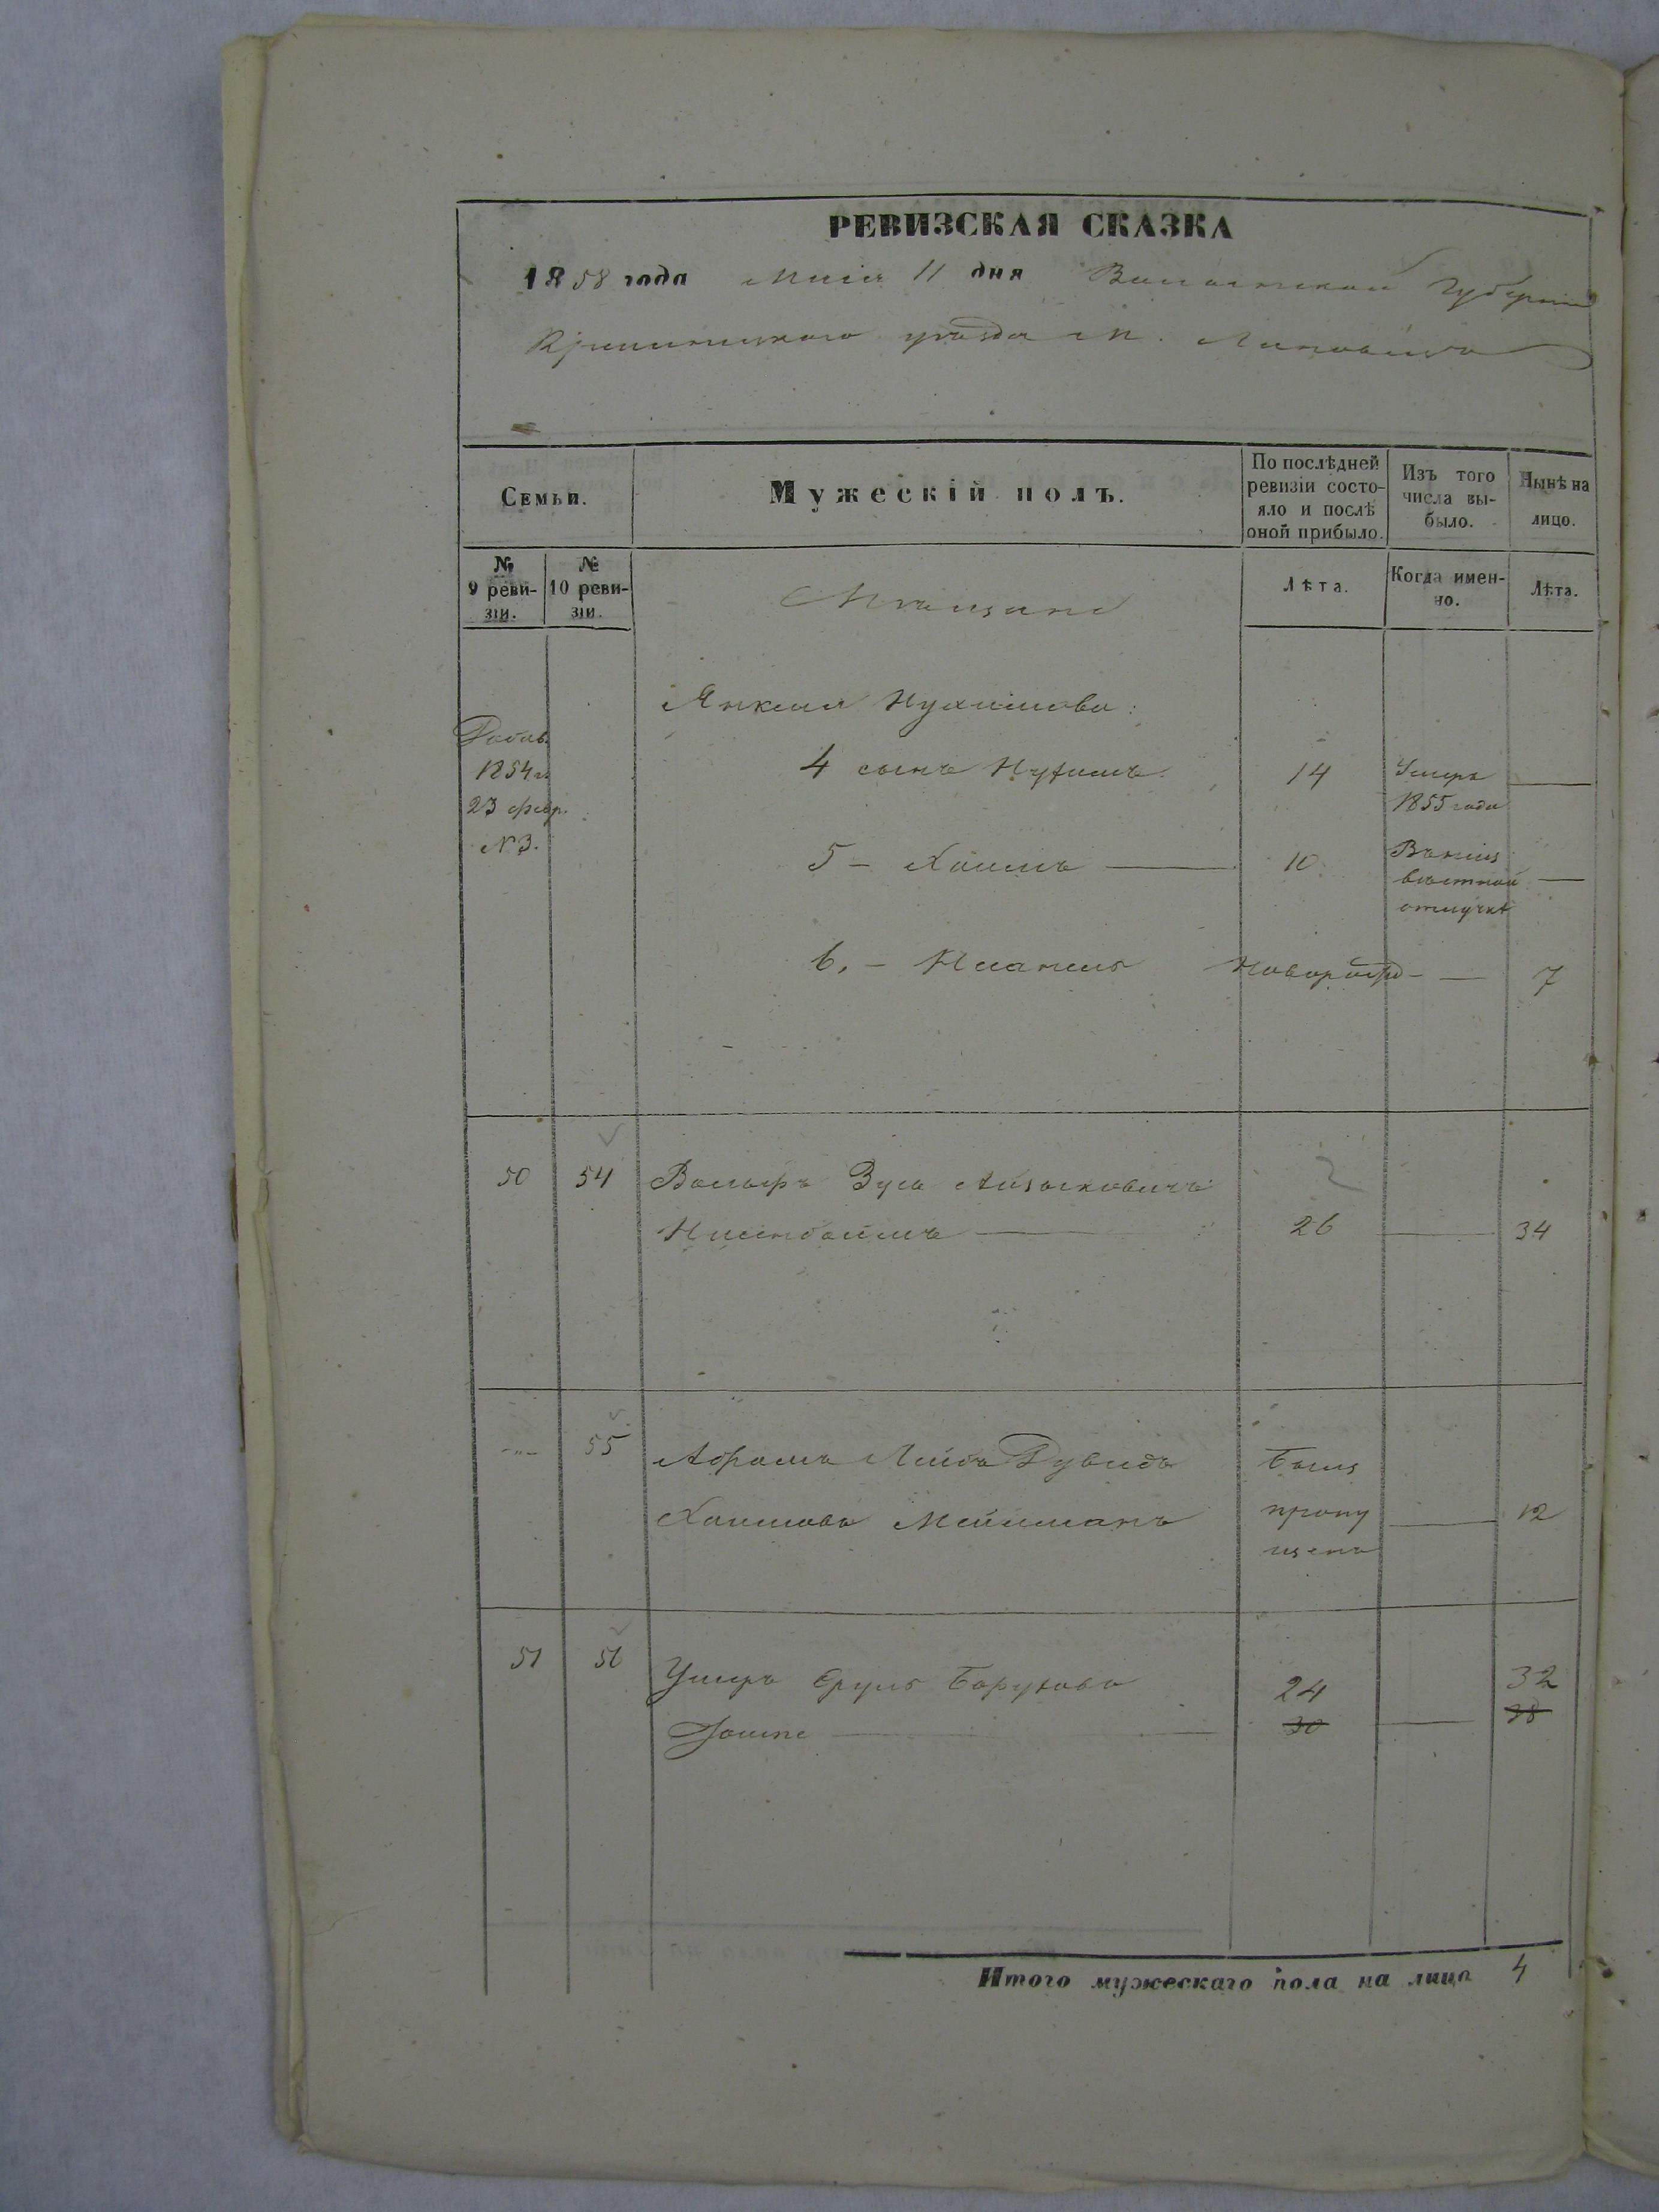 РЕВИЗСКАЯ СКАЗКА
1858 года Маія 11 дня Волынской Губерніи
Кременецкаго уезда М.
Семьи.
Мужескій полъ.
По послѣдней ревизіи состояло и послѣ оной прибыло.
Изъ того числа выбыло.
Нынѣ на лицо.
№ 9 ревизіи.
№ 10 ревизіи.
Мѣщане
Лѣта.
Когда именно.
Лѣта.
Янкеля Нухимова:
Добав.
1854 г.
23 февр.
№ 3.
4 сынъ Нухимъ 14 Умеръ
1855 года
5 - Хаимъ 10
отлучке
6. - Новорожд - 7
50 54 Вольфъ Зусь Айзыковичъ
Нисинбоймъ 26 34
-"- 55 Абрамъ Лейба Дувидъ Былъ
Хаимовъ Мейлманъ пропу 12
щенъ
51 56 Умеръ Сруль Боруховъ 24 32
30 38
Итого мужескаго пола на лицо 4